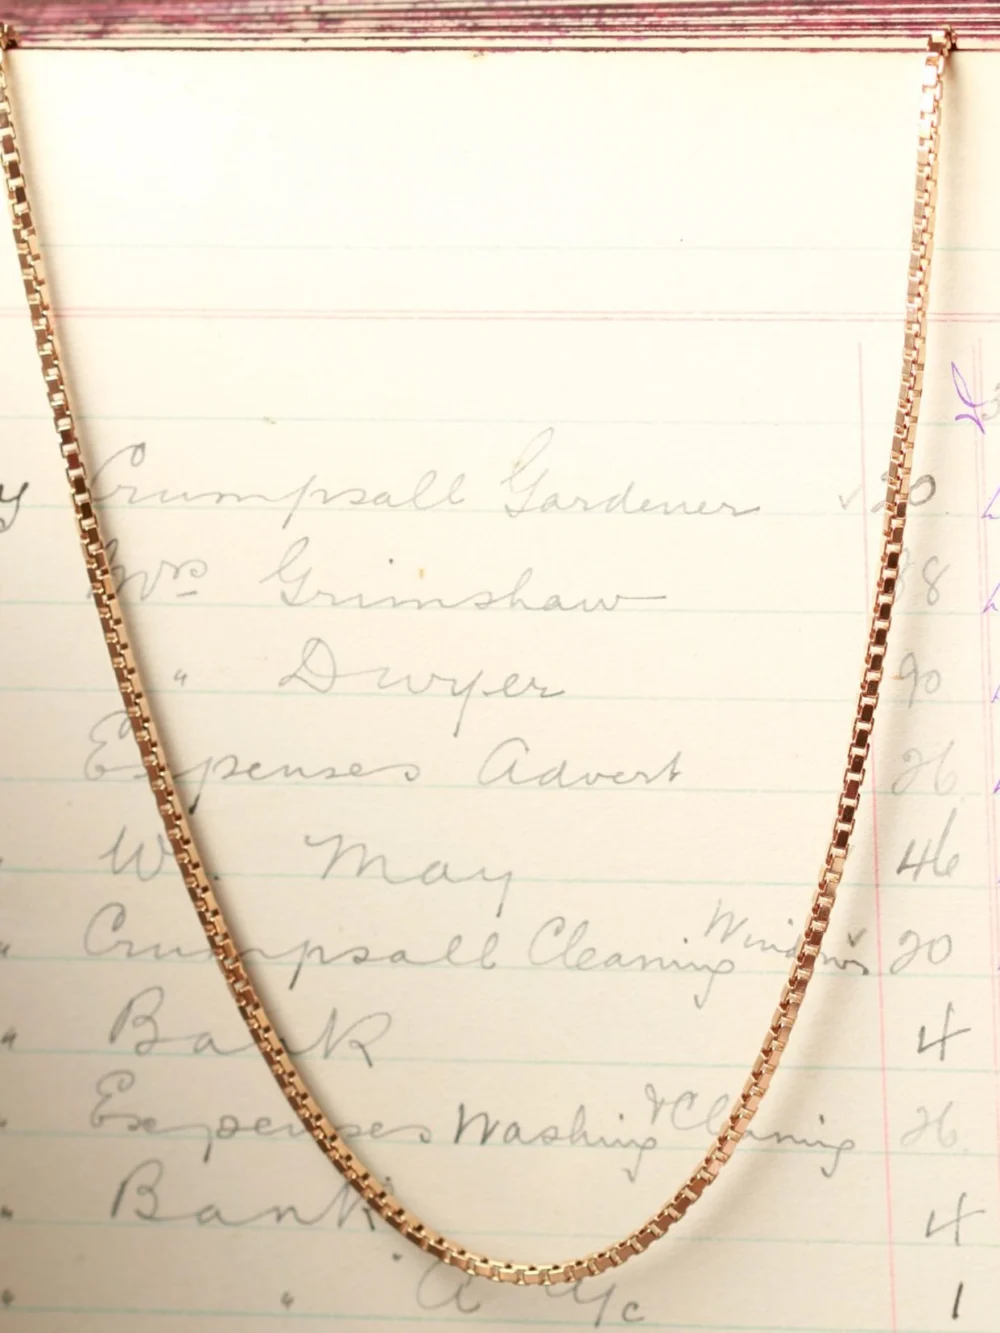 y Crumpsall Gardener ✓ 20
Mrs Grimshaw 38
" Dwyer 90
Expenses Advert 26
W. May 46
" Crumpsall Cleaning Windows 20
" Bank 4
" Expenses Washing & Cleaning 26
" Bank 4
" " A a/c 1